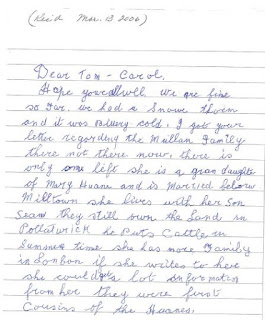 (Rec'd Mar. 13 2006)
Dear Tom - Carol.
Hope your all well we are fine
so far, we had a Snow
and it was Bitterly cold, I got your
letter regarding the Mullan Family
there not there now, there is
only one left she is a grandaughter
of Mary Huane and is Married below
Milltown she lives with her Son
Sean they still own the Land in
Pollatwick he Puts Cattle in
Summer time she has more Family
in London if she writes to her
she could get a lot information
from her they were first
Cousins of the Huanes.